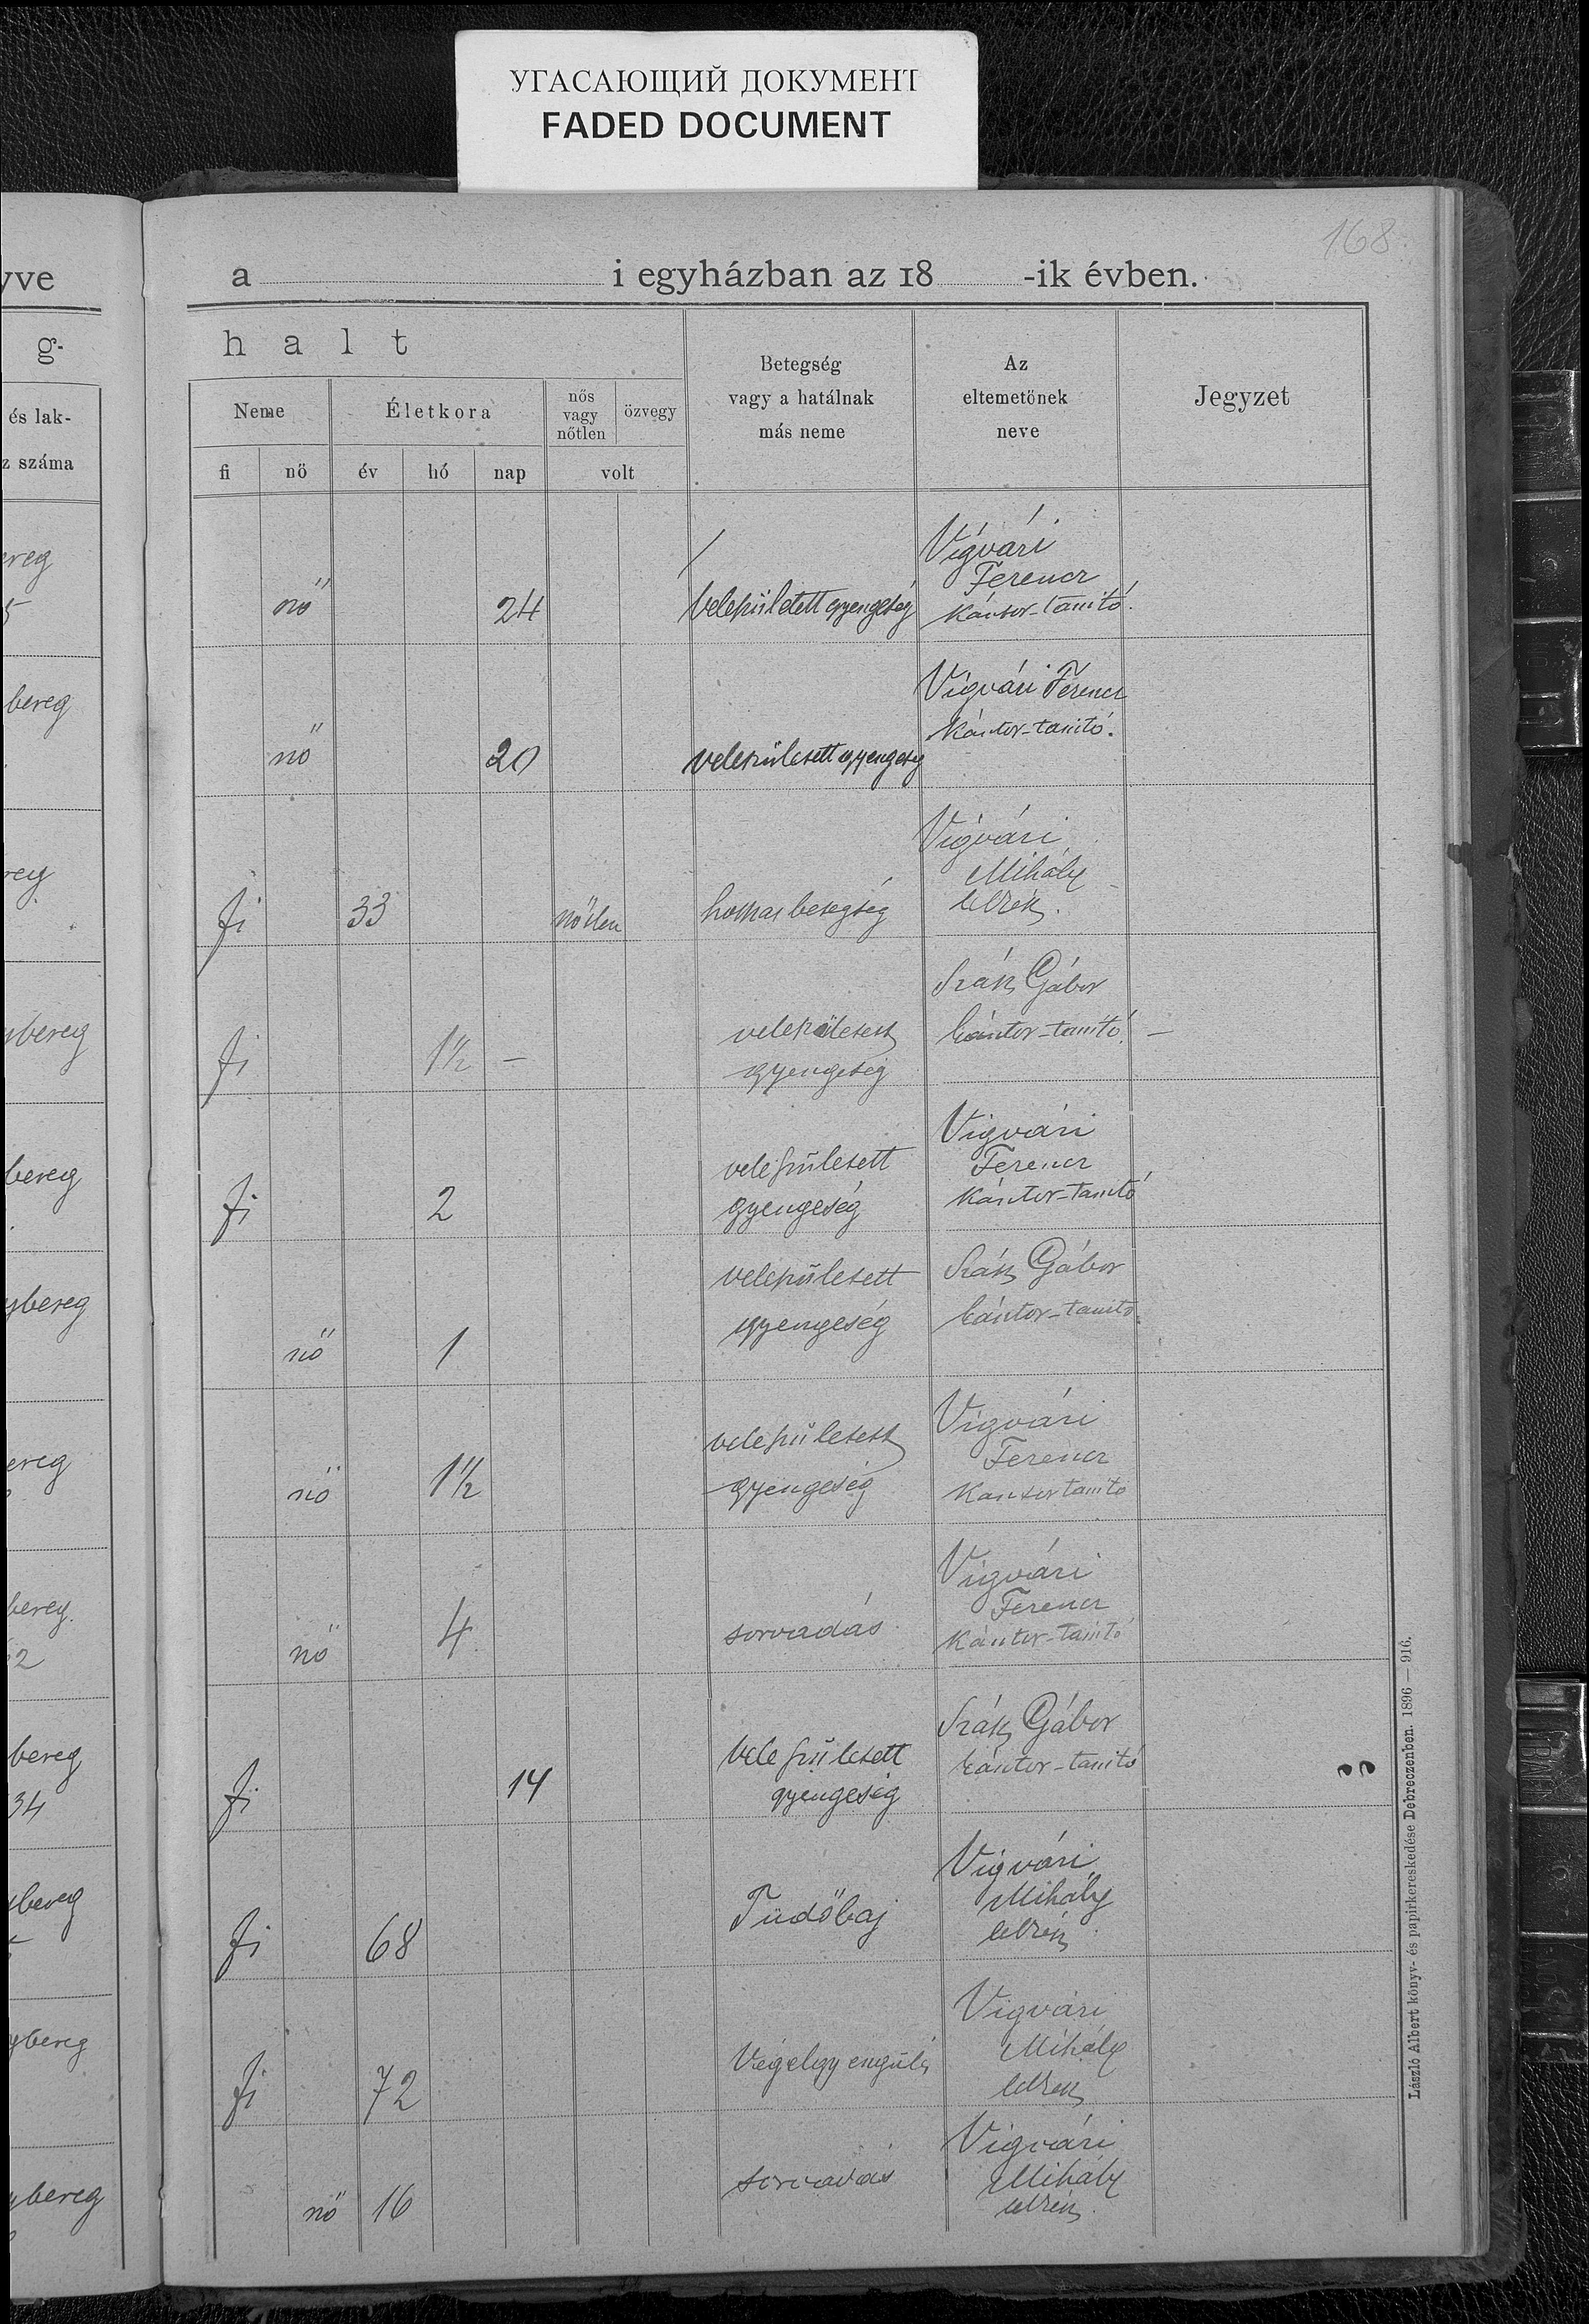 УГАСАЮЩИЙ ДОКУМЕНТ
FADED DOCUMENT
168
yve
a i egyházban az 18 -ik évben.
g-
halt
és lak-
z száma
Neme
Életkora
nős
vagy
nőtlen
özvegy
Betegség
vagy a hatálnak
más neme
Az
eltemetőnek
neve
Jegyzet
fi nő év hó nap volt
ereg
5
nő 24 veleszületett gyengeség
Vigvári
Ferencz
kántor-tanító.
bereg
nő 20 veleszületett gyengeség
Vigvári Ferencz
kántor-tanító.
reg
fi 33 nőtlen betegség
Vigvári
Mihály
lelkész.
ybereg
fi 1½ - veleszületett
gyengeség
Szász Gábor
kántor-tanító. -
bereg
fi 2 veleszületett
gyengeség
Vigvári
Ferencz
kántor-tanító
ybereg
nő 1 veleszületett
gyengeség
Szász Gábor
kántor-tanító.
ereg
nő 1½ veleszületett
gyengeség
Vigvári
Ferencz
kántor tanító
bereg.
62
nő 4 sorvadás
Vigvári
Ferencz
kántor-tanító
bereg
34
fi 14 veleszületett
gyengeség
Szász Gábor
kántor-tanító
ybereg
fi 68 Tüdőbaj
Vigvári
Mihály
lelkész
ybereg
fi 72 Végelgyengülés
Vigvári
Mihály
lelkész
ybereg
nő 16 sorvadás
Vigvári
Mihály
lelkész.
László Albert könyv- és papirkereskedése Debreczenben. 1896 — 916.